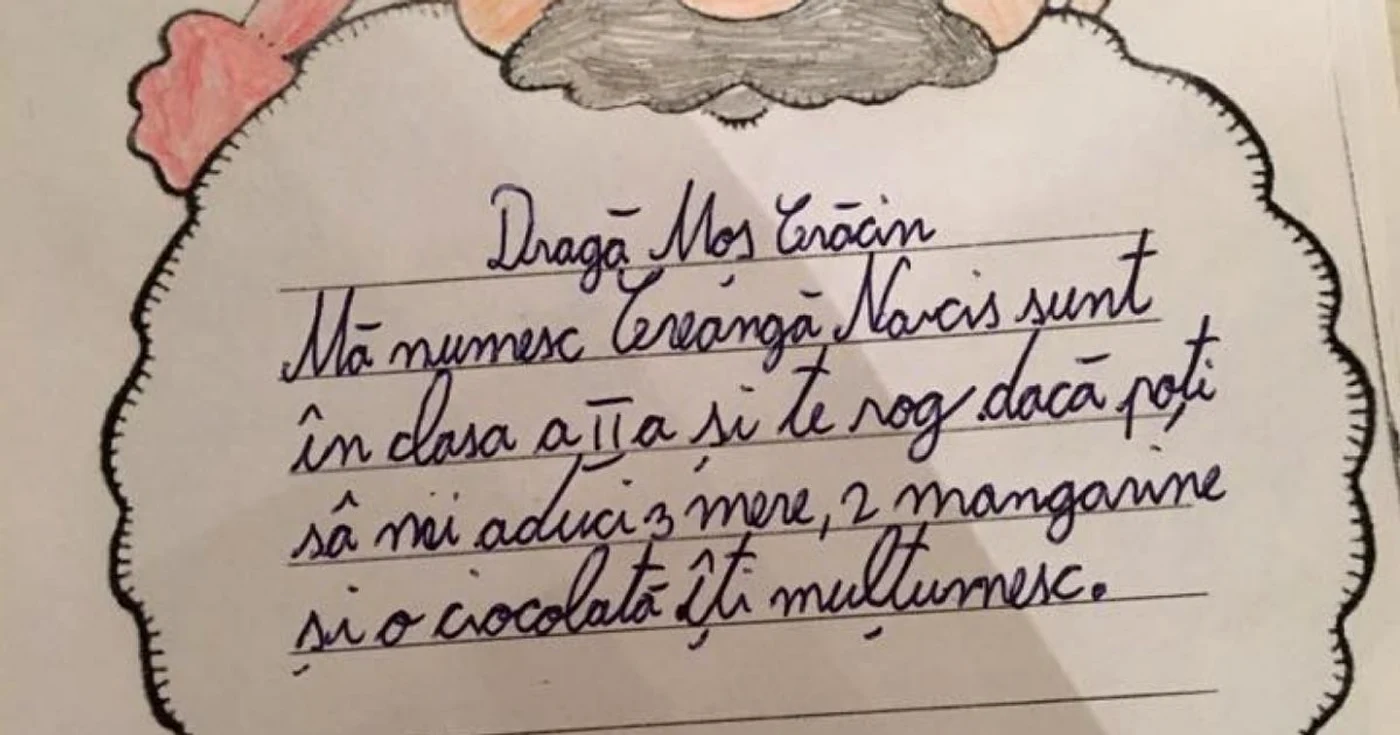 Dragă Moș Crăcin
Mă numesc Creangă Narcis sunt
în clasa a II a și te rog dacă poți
sâ mi aduci 3 mere, 2 mangarine
și o ciocolată îți mulțumesc.